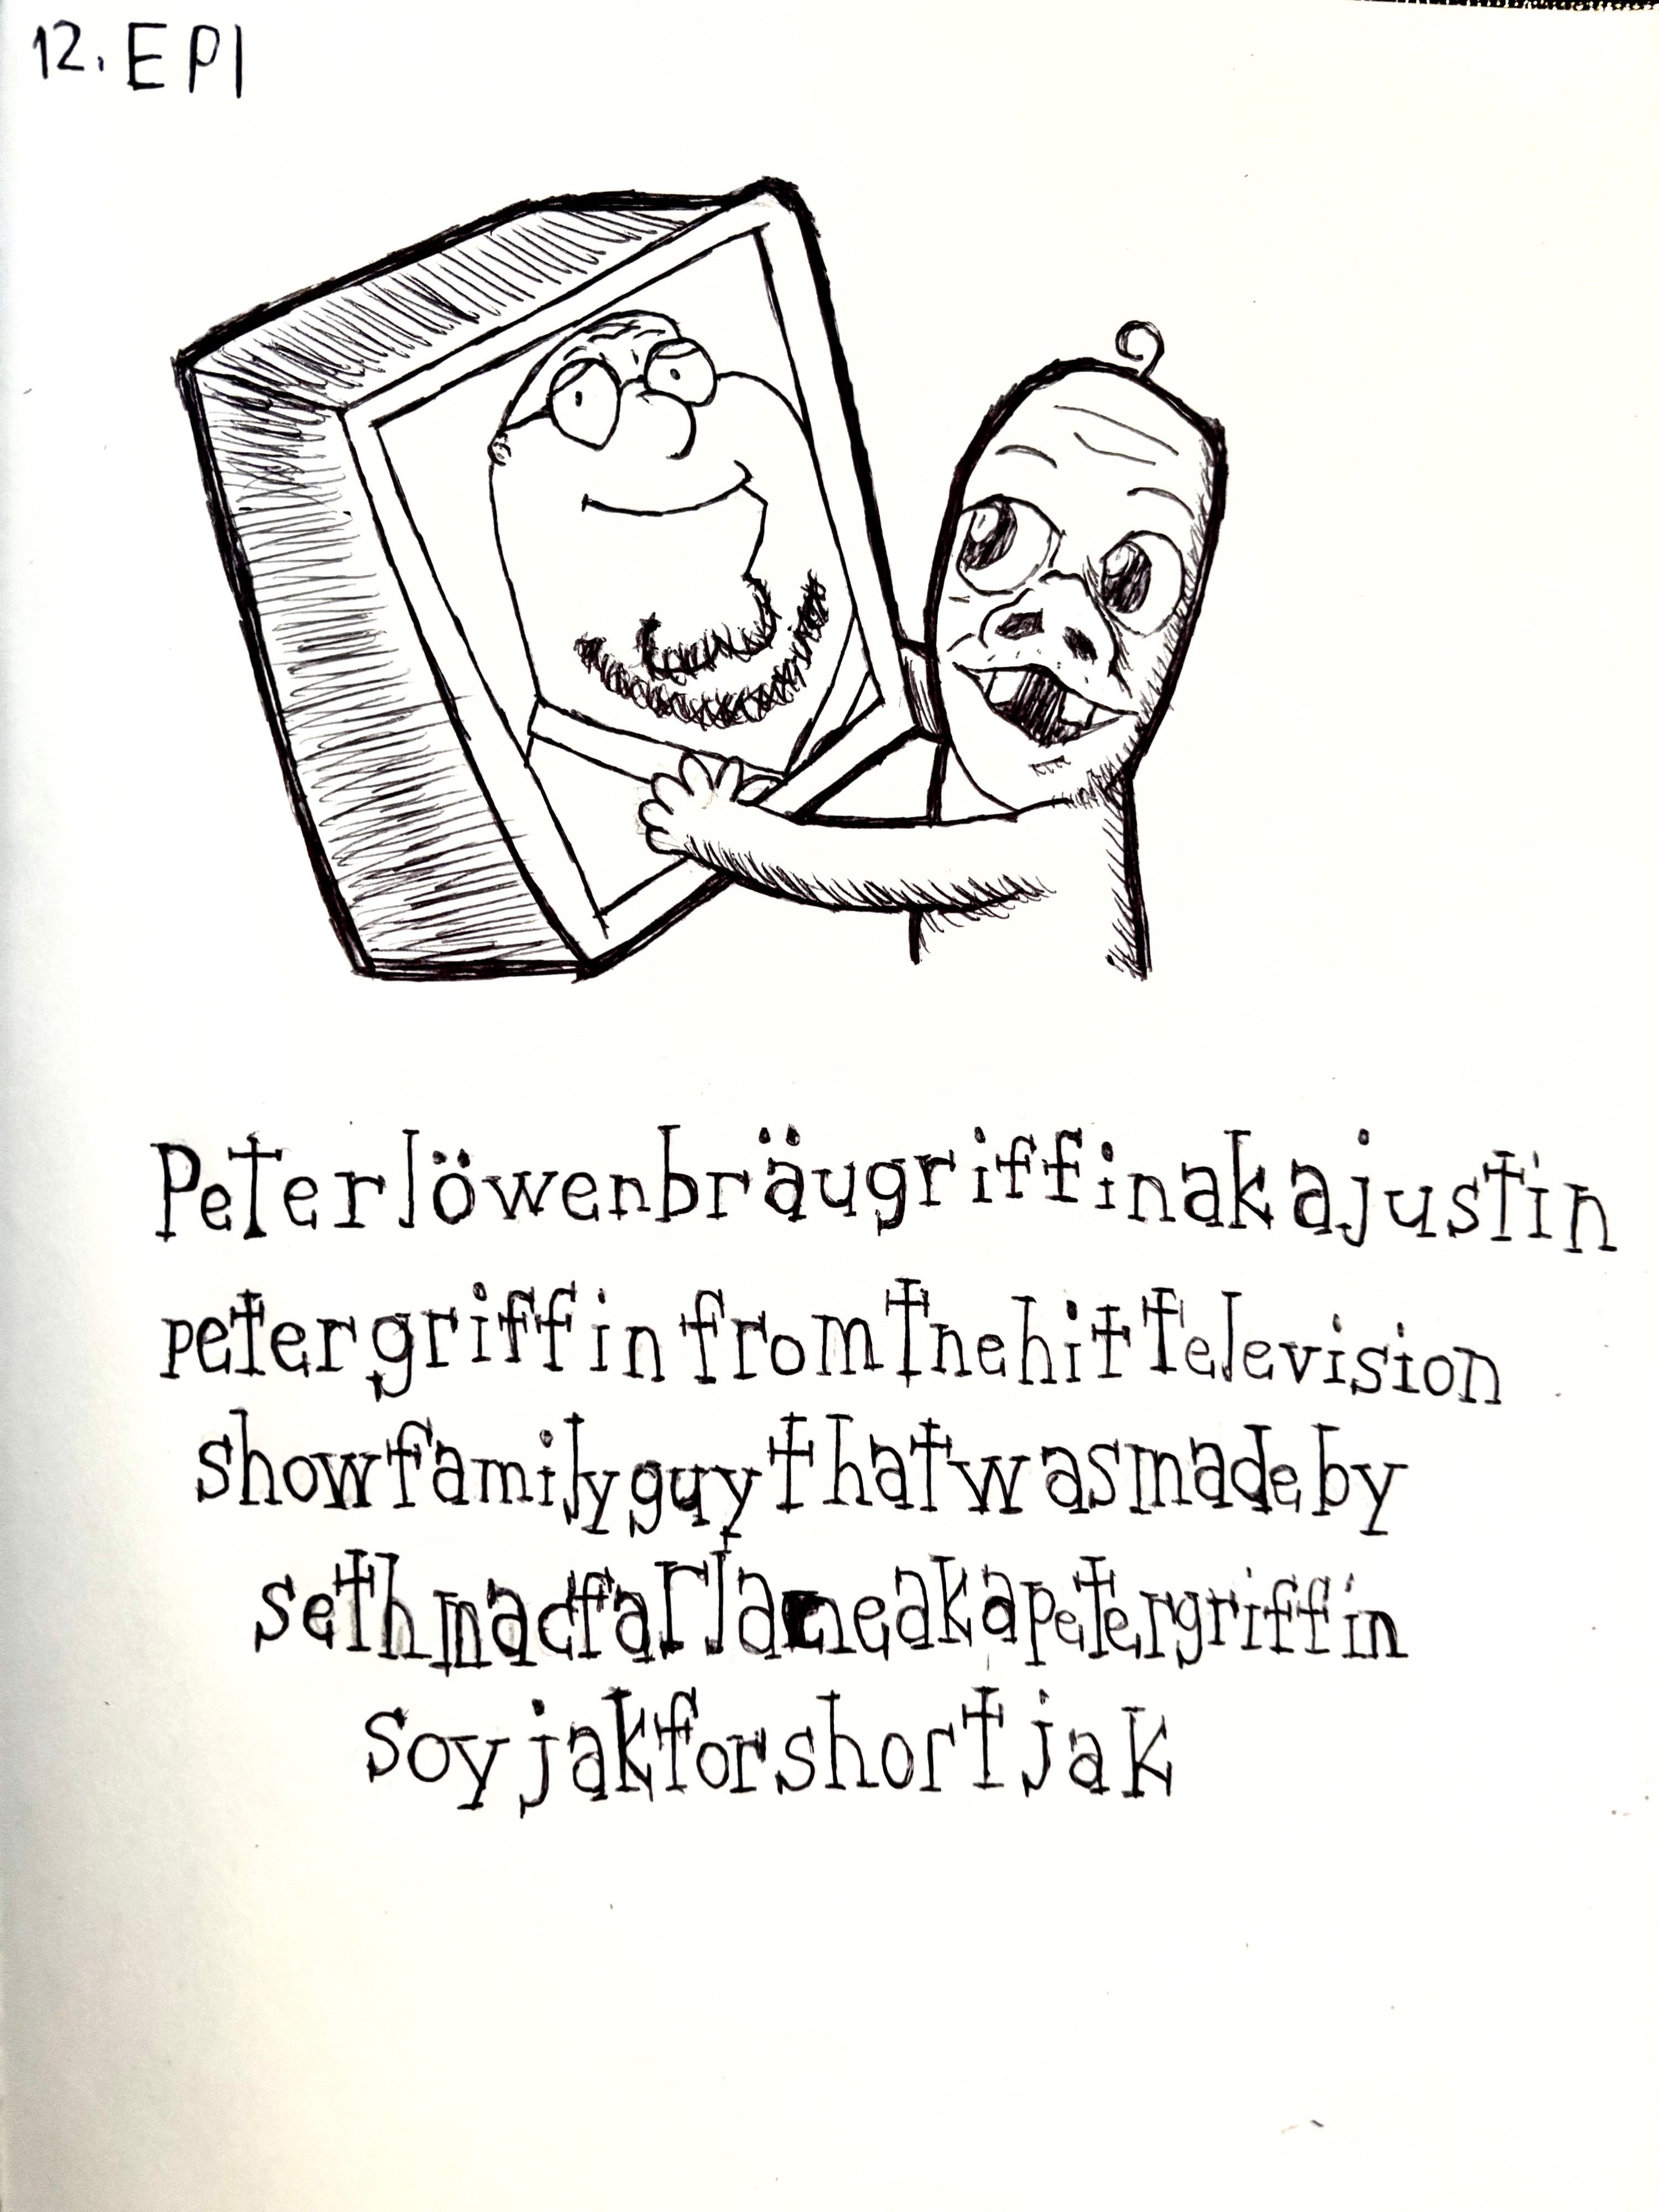 12. EPI
Peterlöwenbräugriffinakajustin
petergriffinfromthehittelevision
showfamilyguythatwasmadeby
sethmacfarlaneakapetergriffin
soyjakforshortjak